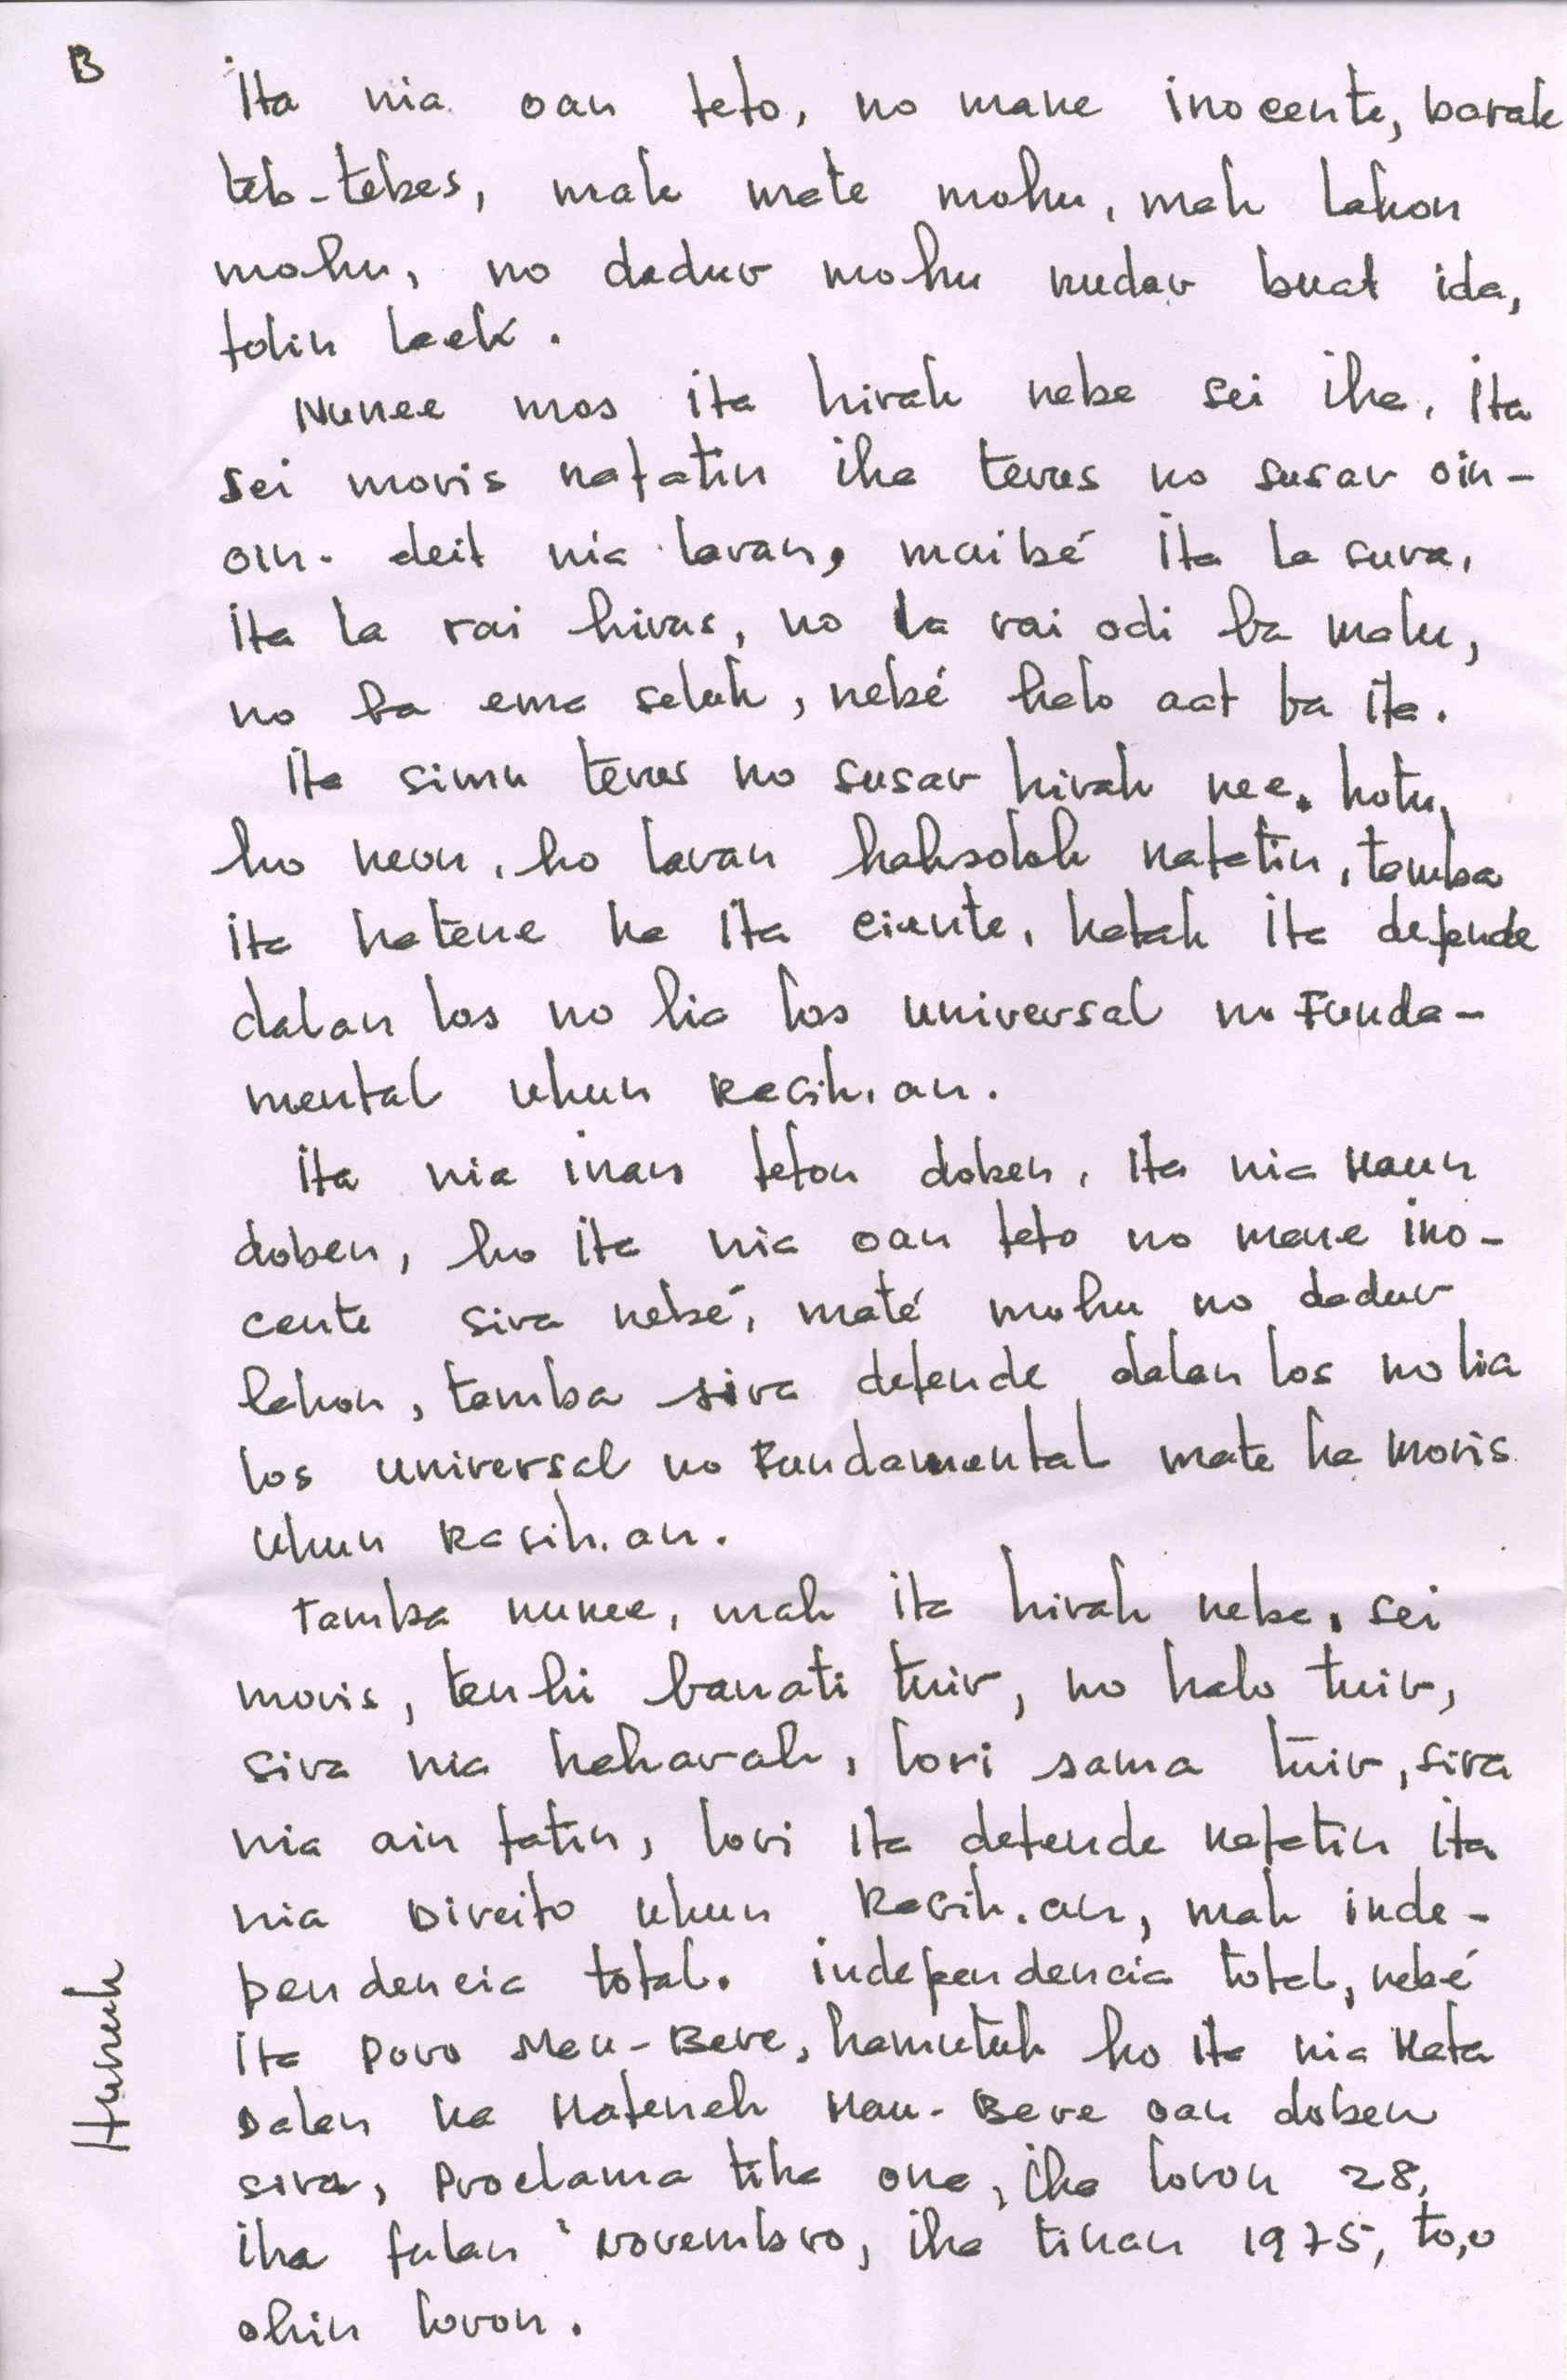 B
Ita nia oan feto, no mane inocente, barak
teb-tebes, mak mate mohu, mak lakon
mohu, no dadur mohu nudar buat ida,
folin laek.
Nunee mos ita hirak nebe sei iha, ita
sei moris nafatin iha terus no susar oin-
oin. deit nia laran, maibé ita la sura,
ita la rai hirus, no la rai odi ba malu,
no ba ema seluk, nebé halo aat ba ita.
Ita simu terus no susar hirak nee. hotu,
ho neon, ho laran haksolok nafatin, tamba
ita hatene ka ita ciente, katak ita defende
dalan los no lia los universal no Funda-
mental ukun Rasik.an.
Ita nia inan feton doben, ita nia Maun
doben, ho ita nia oan feto no mane ino-
cente sira nebé, maté mohu no dadur
lakon, tamba sira defende dalan los no lia
los universal no Fundamental mate ka moris
ukun Rasik.an.
Tamba nunee, mak ita hirak nebe, sei
moris, tenki banati tuir, no halo tuir,
sira nia hakarak, lori sama tuir, sira
nia ain fatin, lori ita defende nafatin ita
nia Direito ukun Rasik.an, mak inde-
pendencia total. independencia total, nebé
ita Povo Mau-Bere, hamutuk ho ita nia Mata
Dalan ka Matenek Mau-Bere oan doben
sira, Proclama tiha ona, iha loron 28,
iha fulan Novembro, iha tinan 1975, to,o
ohin loron.
Hunuk